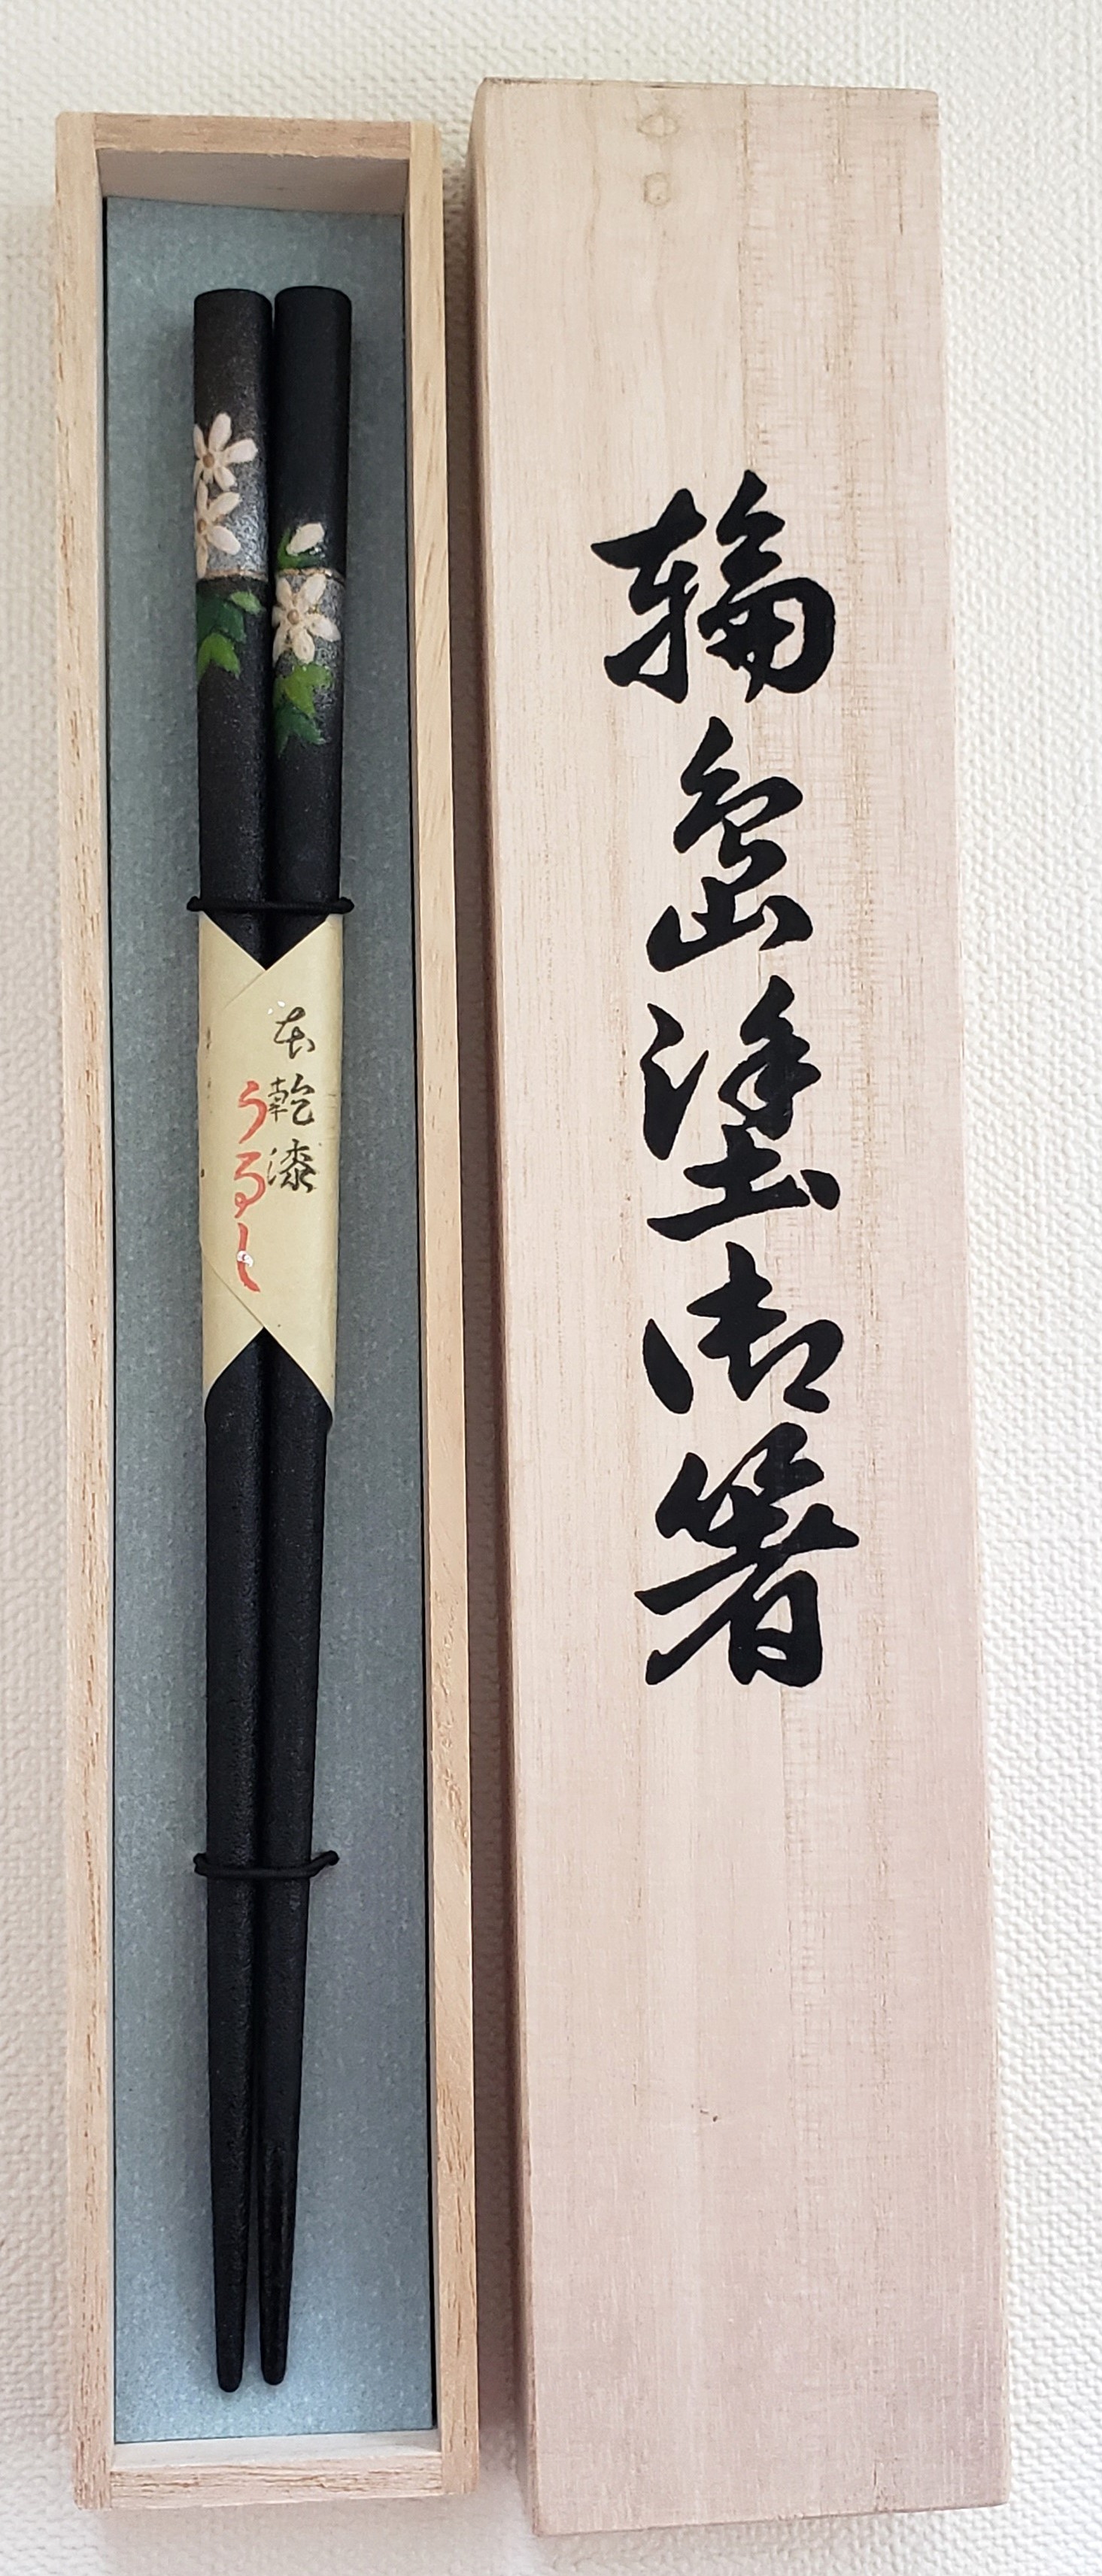 輪島塗御箸
本乾漆
うるし